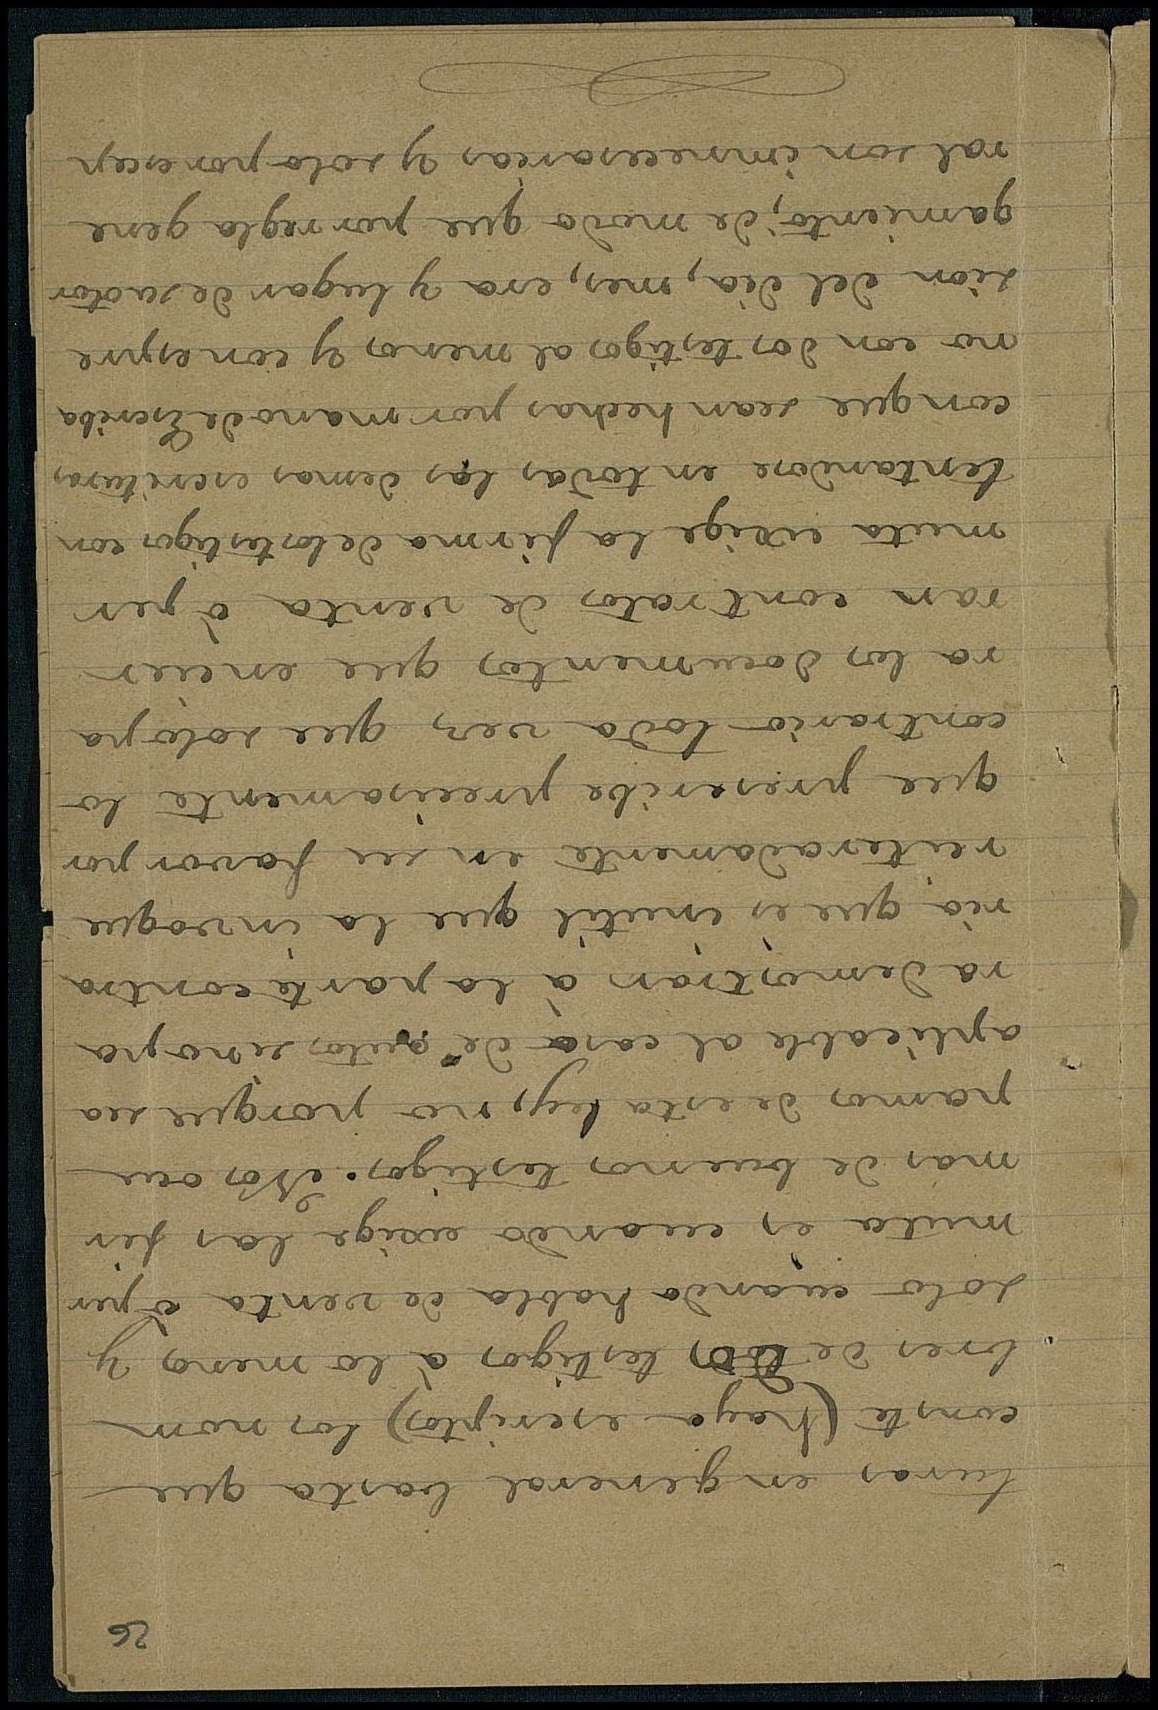 26
turas en general basta que
conste (haya escriptos) los nom
bres de dos testigos à lo menos y
solo cuando habla de venta ò per
muta es cuando exige las fir
mas de buenos testigos. Nos ocu
pamos de esta ley, no porque sea
aplicable al caso de autos, sino pa
ra demostrar à la parte contra
ria que es inutil que la invoque
reiteradamente en su favor por
que prescribe precisamente lo
contrario toda vez que solo pa
ra los documentos que encier
ran contratos de venta ò per
muta exige la firma de los testigos con
tentandose en todas las demas escrituras,
con que sean hechas por mano de Escriba
no con dos testigos al menos y con espre
sion del dia, mes, era y lugar de su otor
gamiento; de modo que por regla gene
ral son innecesarias y solo por escep